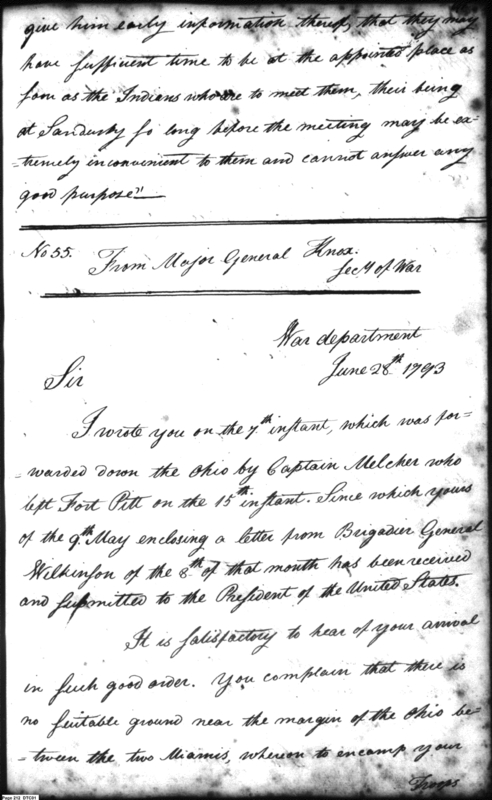 give him early information thereof, that they may
have sufficient time to be at the appointed place as
soon as the Indians who are to meet them, their being
at Sandusky so long before the meeting may be ex=
=tremely inconvenient to them and cannot answer any
good purpose"
No 55. From Major General Knox.
Secy of War
War department
June 28th 1793
Sir
I wrote you on the 7th instant, which was for=
=warded down the Ohio by Captain Melcher who
left Fort Pitt on the 15th instant. Since which yours
of the 9th May enclosing a letter from Brigadier General
Wilkinson of the 8th of that month has been received
and submitted to the President of the United States.
It is satisfactory to hear of your arrival
in such good order. You complain that there is
no suitable ground near the margin of the Ohio be=
=tween the two Miamis, whereon to encamp your
Troops
Page 212 DTC01